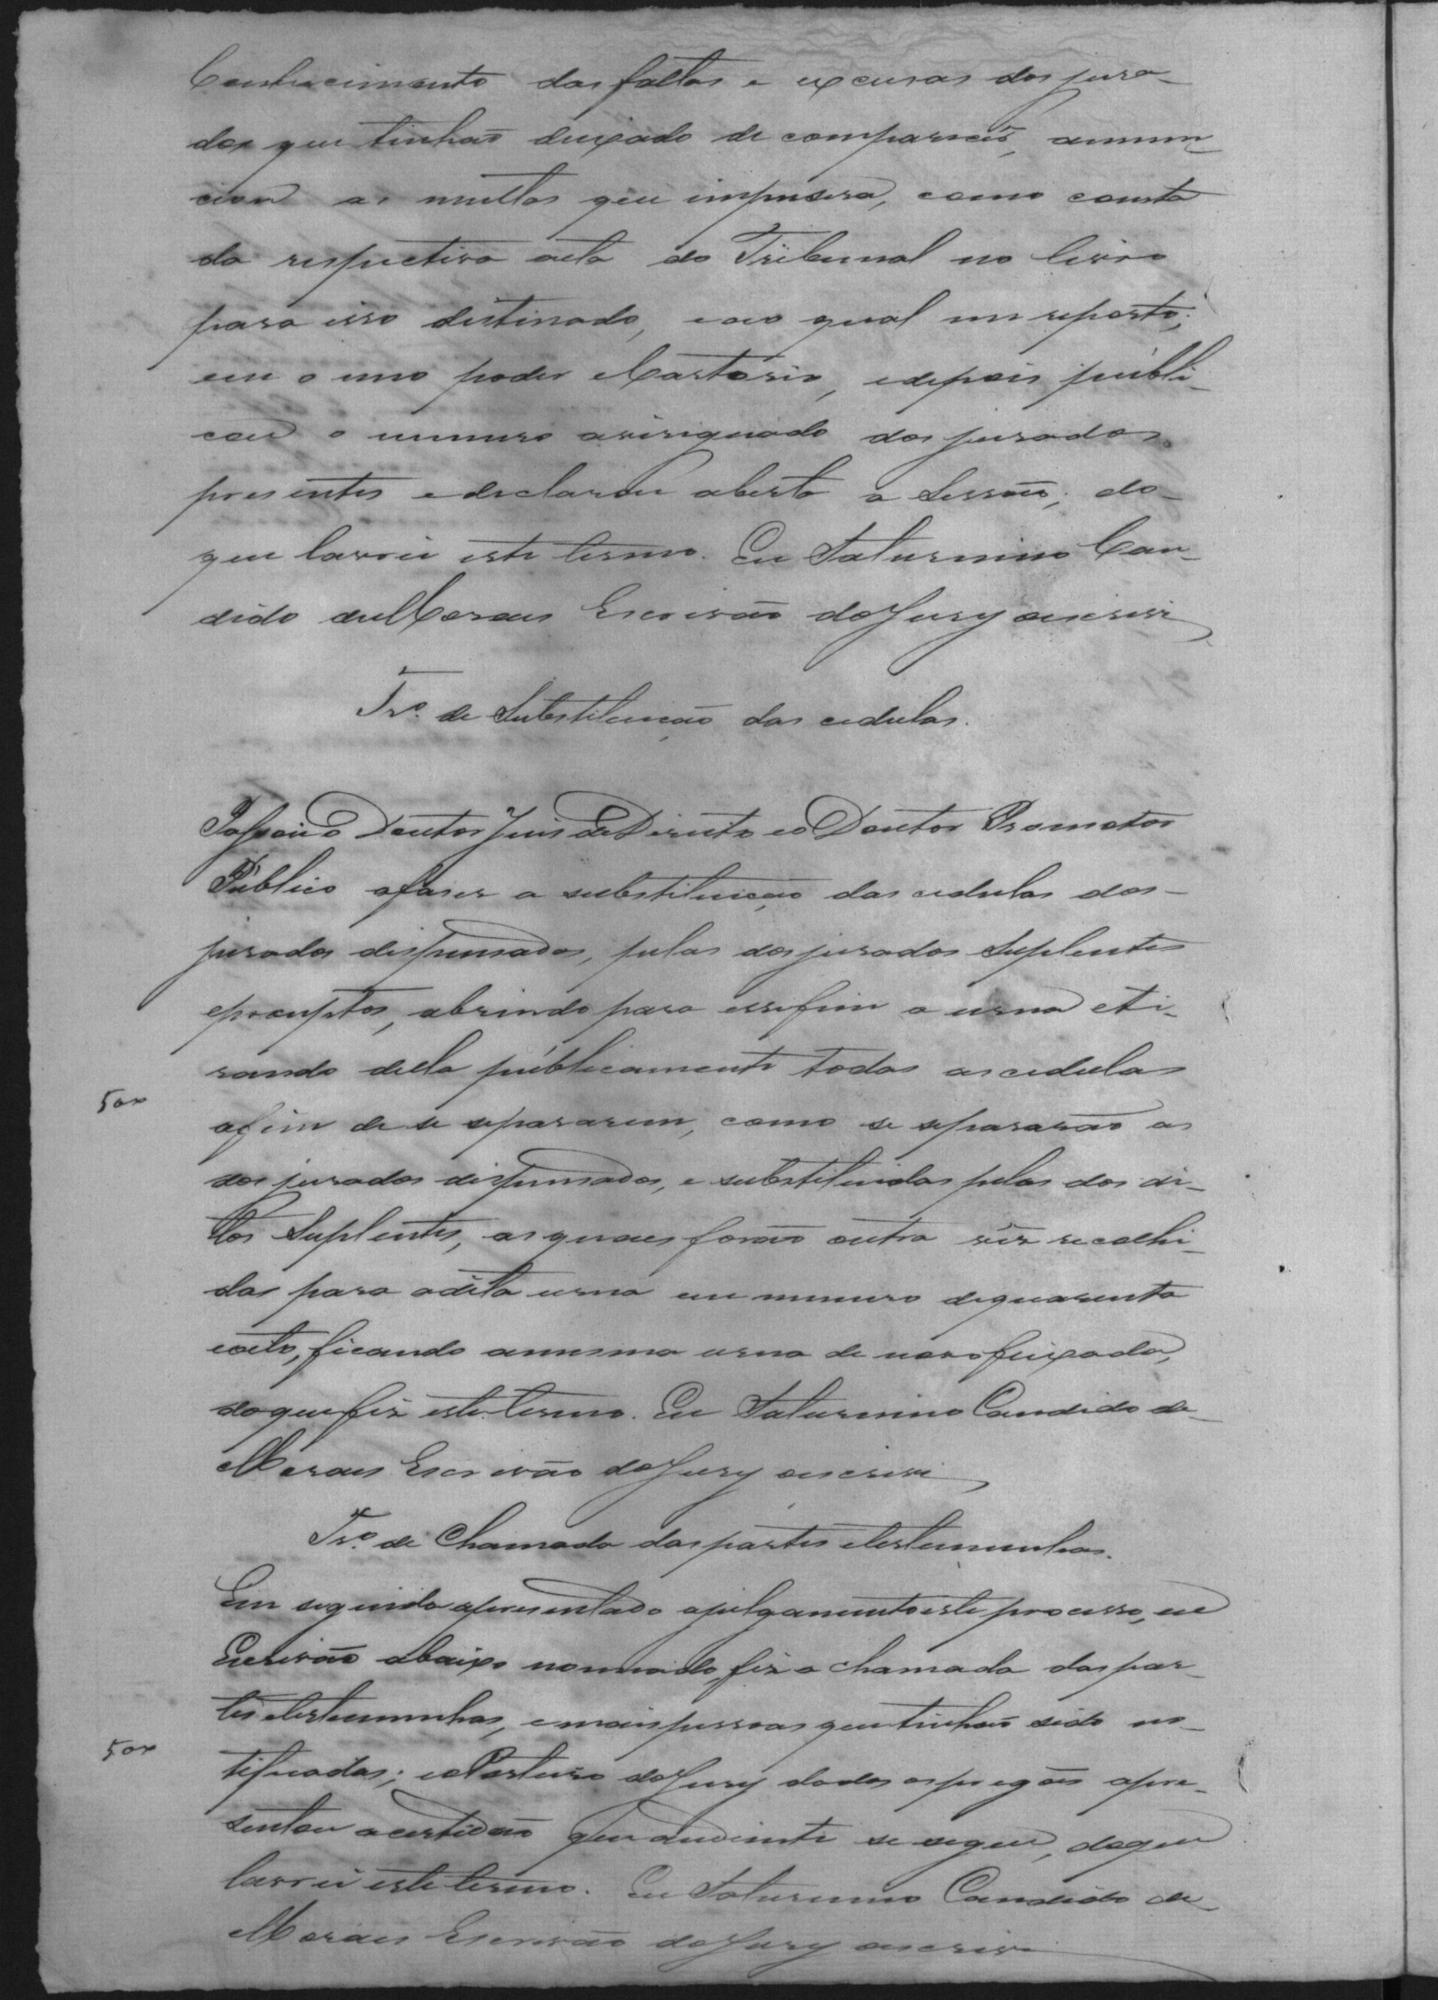 Conhecimento das faltas e excusas dos jura-
dos que tinhão deixado de comparecer, annun-
ciou as multas que impusera, como consta
da respectiva acta do Tribunal no livro
para isso distinado, e ao qual me reporto,
em o meo poder e Cartorio, e depois publi-
cou o numero averiguado dos jurados
presentes e declarou aberta a Sessão; do-
que lavrei este termo. Eu Saturnino Can-
dido de Moraes Escrivão do Jury o escrevi
Tr.º de Substituição das cedulas.
Passou o Doutor Juis de Direito e o Doutor Promotor
Publico a faser a substituição das cedulas dos-
jurados dispensados, pelas dos jurados Suplentes
e promptos, abrindo para esse fim a urna e ti-
rando della públicamente todas as cedulas
500
afim de se separarem, como se separarão as
dos jurados dispensados, e substituidas pelas dos di-
tos Suplentes, as quaes forão outra vez recolhi-
das para a dita urna em numero de quarenta
e oito, ficando a mesma urna de novo feixada,
do que fiz este termo. Eu Saturnino Candido de
Moraes Escrivão do Jury o escrevi
Tr.º de Chamada das partes e testemunhas.
Em seguida apresentado a julgamento este processo, eu
Escrivão abaixo nomeado, fiz a chamada das par-
tes e testemunhas, e mais pessoas que tinhão sido no-
500
tificadas; e o Porteiro do Jury dados os pregões apre-
sentou a certidão que adiente se segue, do que
lavrei este termo. Eu Saturnino Candido de
Moraes Escrivão do Jury o escrevi